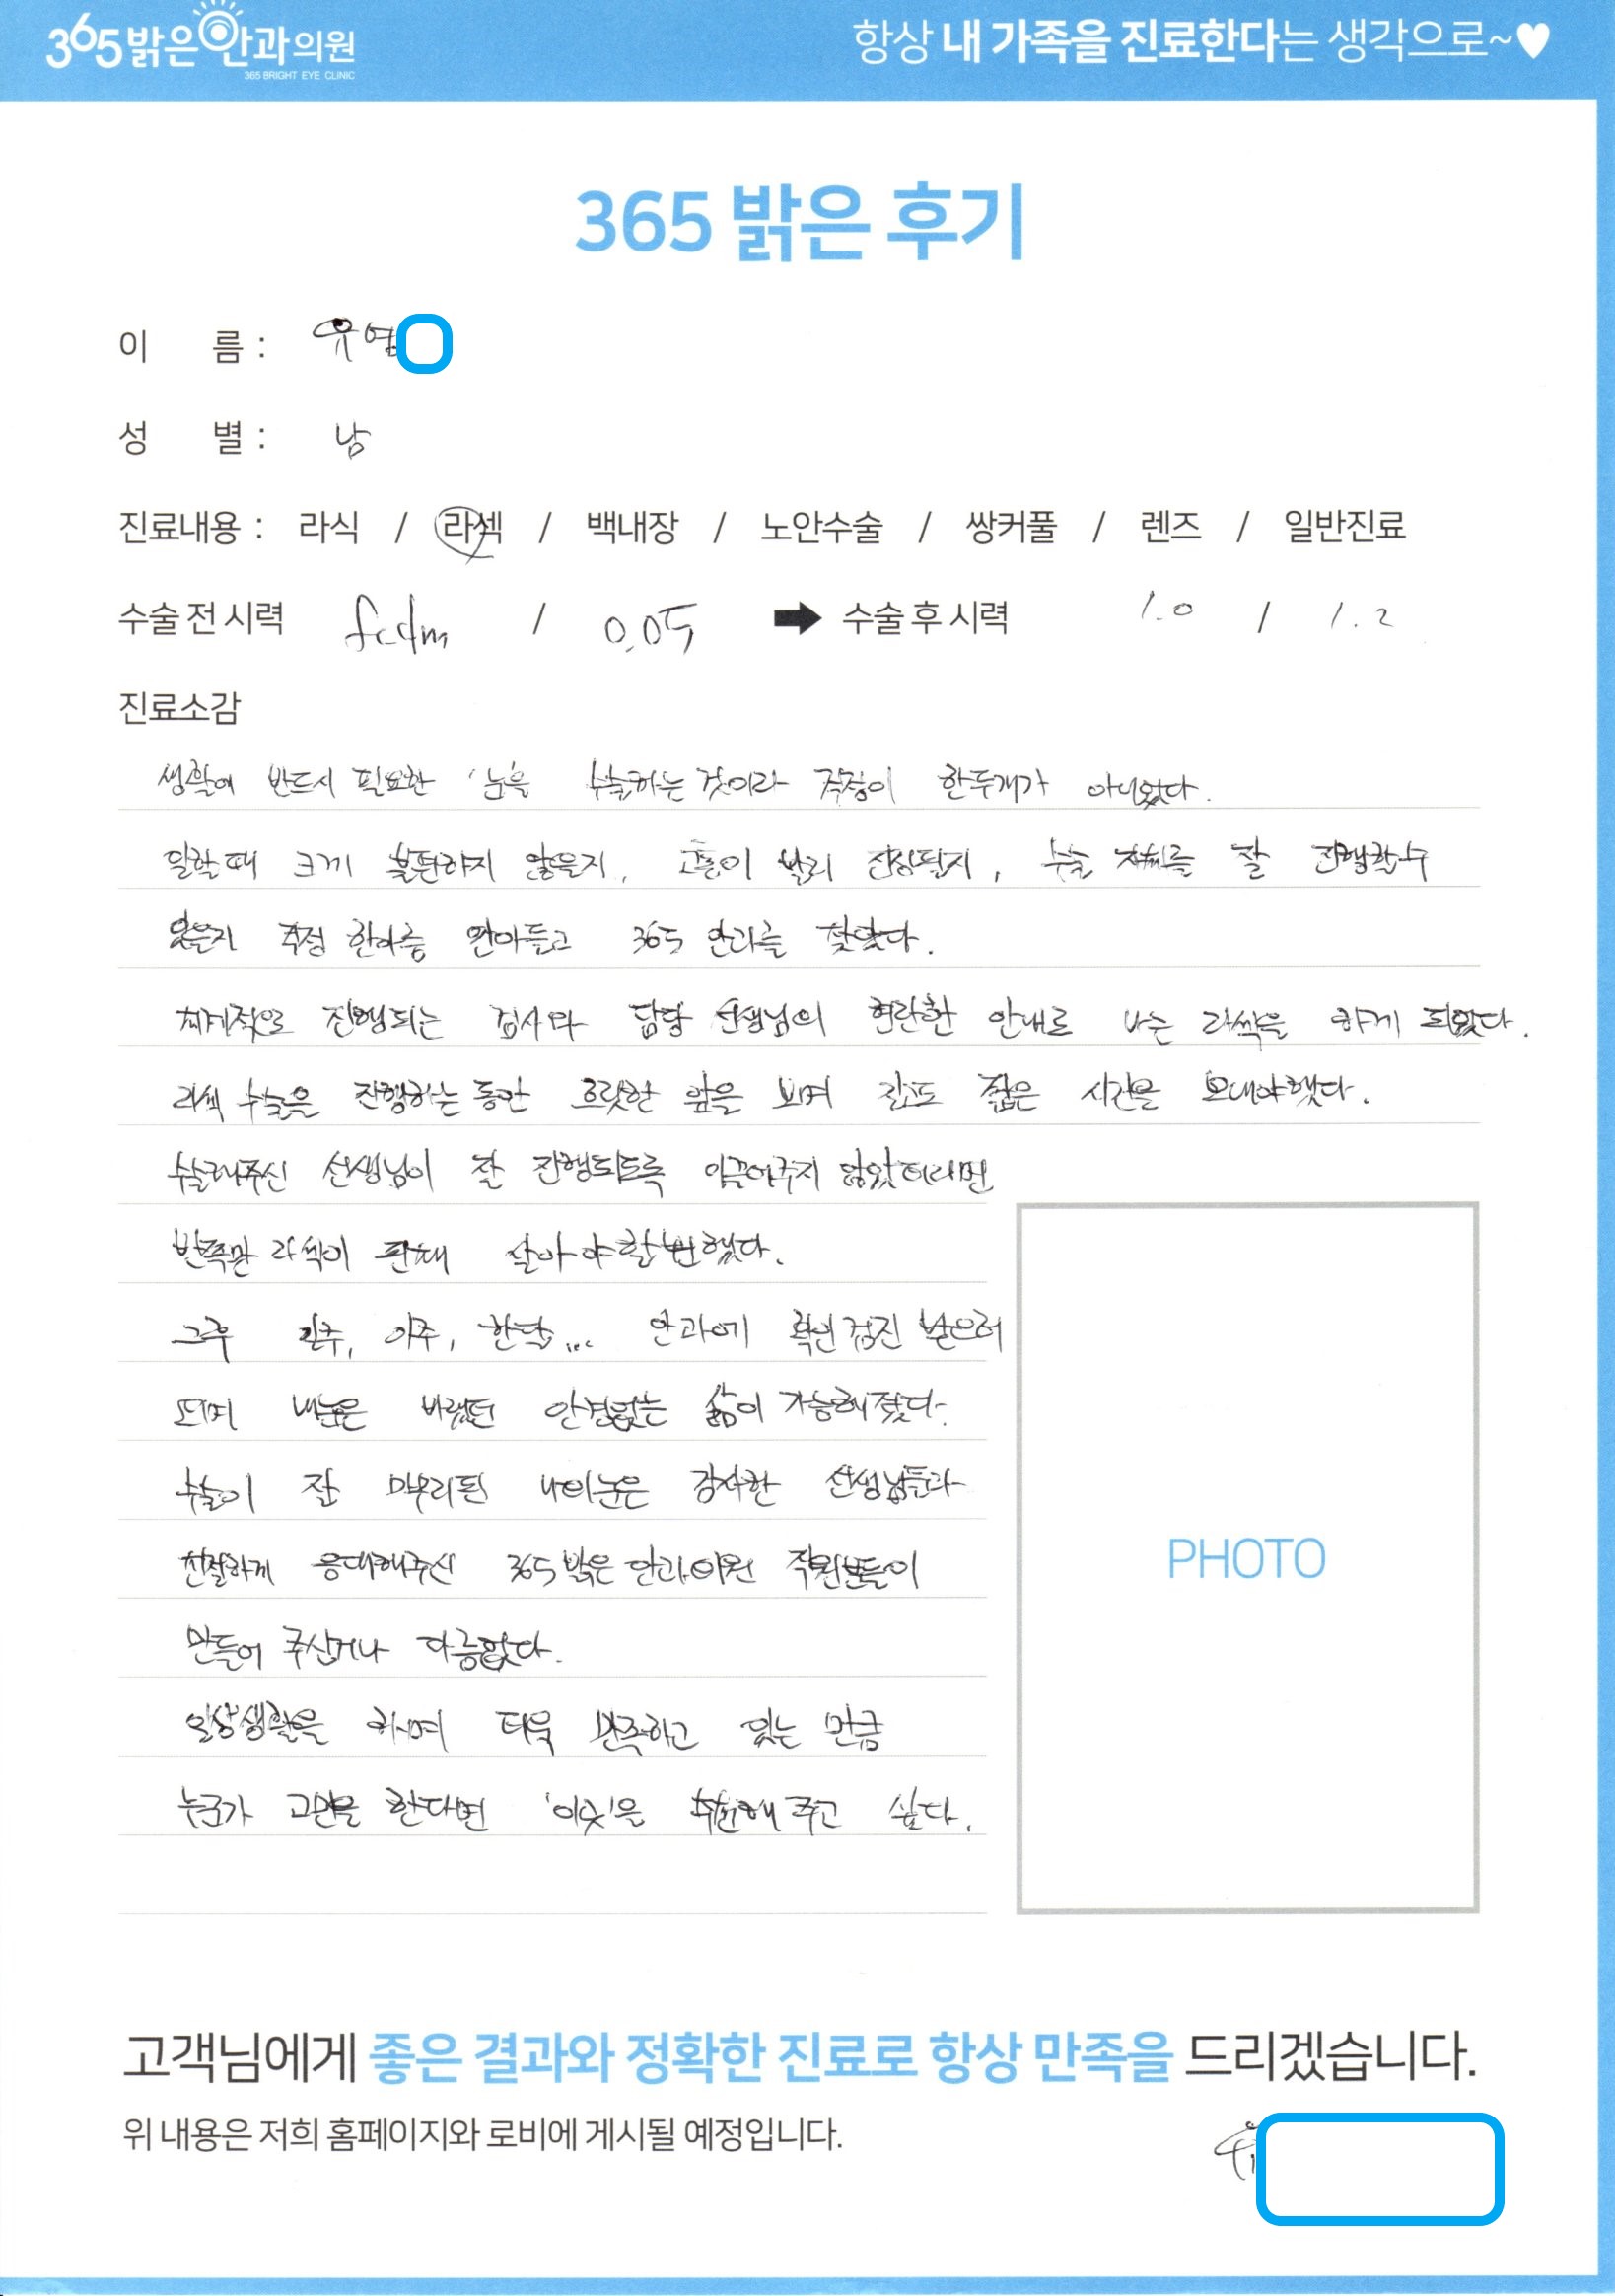 365밝은안과의원
365 BRIGHT EYE CLINIC
항상 내 가족을 진료한다는 생각으로~♥
365 밝은 후기
이 름 : 유영
성 별 : 남
진료내용 : 라식 / 라섹 / 백내장 / 노안수술 / 쌍커풀 / 렌즈 / 일반진료
수술 전 시력 / 0.05 ➡ 수술 후 시력 1.0 / 1.2
진료소감
생활에 반드시 필요한 '눈'을 수술하는 것이라 걱정이 한두개가 아니었다.
일할 때 크게 불편하지 않을지, 고통이 빨리 진정될지, 수술 자체를 잘 진행할수
있을지 걱정 한아름 껴안아들고 365 안과를 찾았다.
체계적으로 진행되는 검사와 담당 선생님의 현란한 안내로 나는 라섹을 하게 되었다.
라섹 수술을 진행하는 동안 흐릿한 앞을 보며 길고도 짧은 시간을 보내야했다.
수술해주신 선생님이 잘 진행되도록 이끌어주지 않았더라면
반쪽만 라섹이 된채 살아야할뻔했다.
그후 일주, 이주, 한달... 안과에 확인검진 받으러
다니며 내눈은 바랬던 안경없는 삶이 가능해졌다.
수술이 잘 마무리된 나의눈은 감사한 선생님들과
친절하게 응대해주신 365밝은안과의원 직원분들이
만들어 주신거나 다름없다.
일상생활을 하며 더욱 만족하고 있는 만큼
누군가 고민을 한다면 '이곳'을 추천해 주고 싶다.
PHOTO
고객님에게 좋은 결과와 정확한 진료로 항상 만족을 드리겠습니다.
위 내용은 저희 홈페이지와 로비에 게시될 예정입니다.